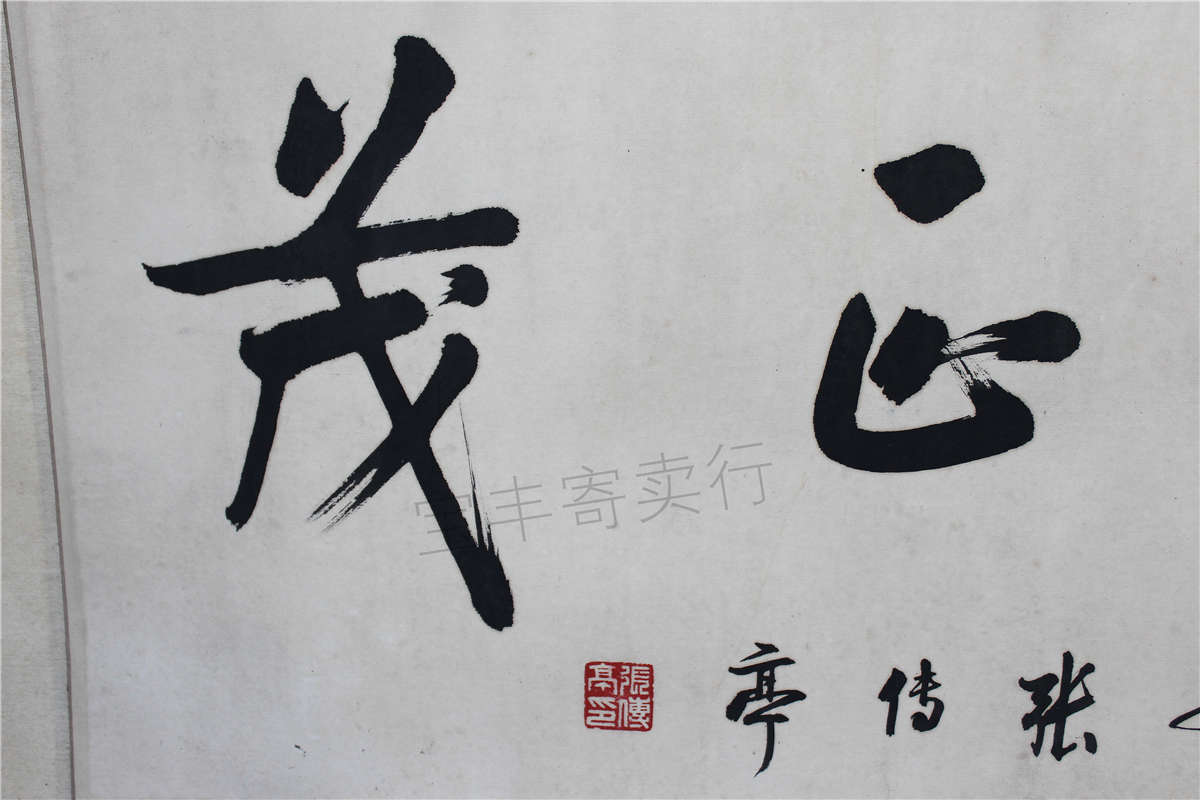 正茂
张传亭
張傳亭印
宝丰寄卖行